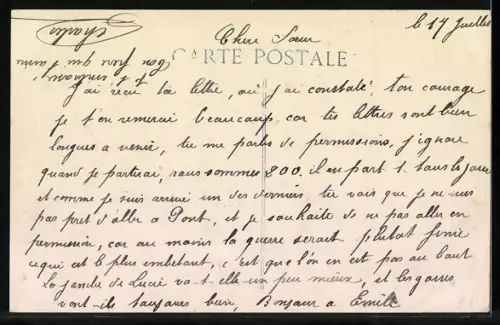 le 17 Juillet
Chère Sœur
CARTE POSTALE
J'ai reçu ta lettre, où j'ai constaté, ton courage
je t'en remerci beaucoup, car tes lettres sont bien
longues a venir, tu me parles de permissions, j'ignore
quand je partirai, nous sommes 200. il en part 1. tous les jours
et comme je suis arrivé un des derniers, tu vois que je ne suis
pas pret d'aller a Pont, et je souhaite de ne pas aller en
permission, car au moins la guerre serait plutot finie
ce qui est le plus embetant, c'est que l'on en est pas au bout
La jambe de Lucie va-t-elle un peu mieux, et les gosses
vont-ils toujours bien, Bonjour a Emile
Ton frère qui t'aime
et t'embrasse
Charles